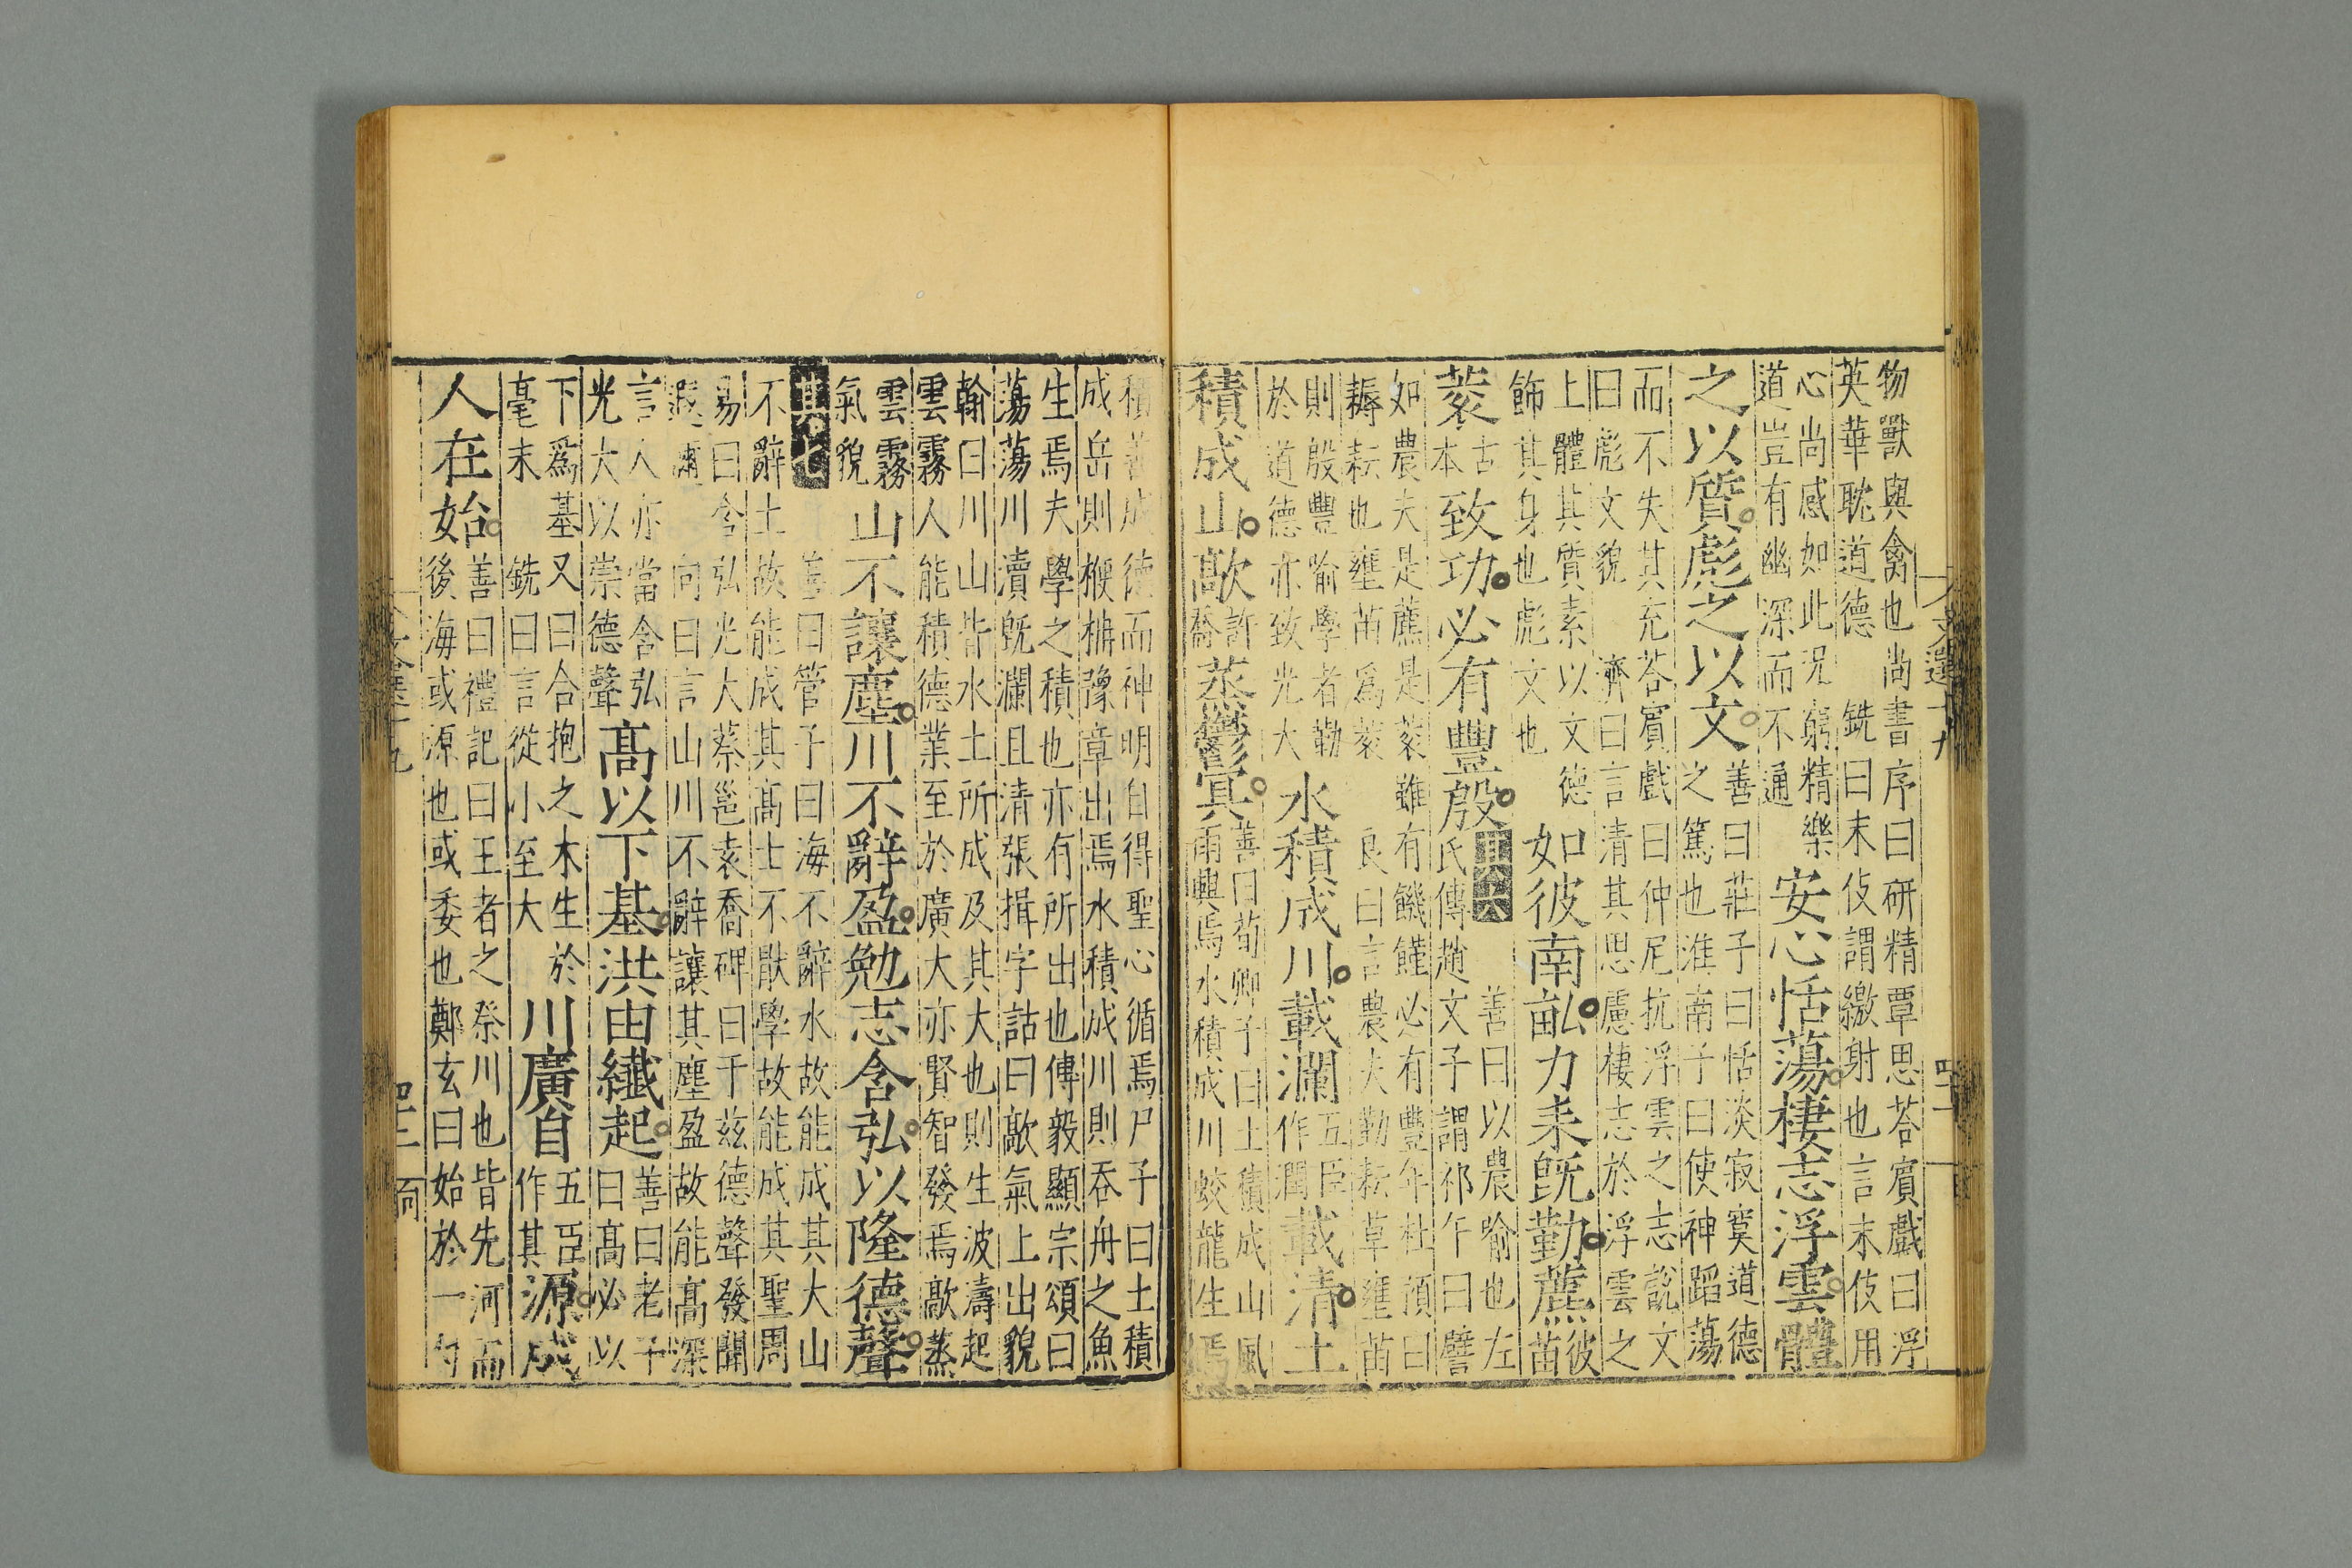 文選十九
四十一
物獸與禽也尚書序曰研精覃思荅賓戲曰浮
英華耽道德　銑曰末伎謂繳射也言末伎用
心尚感如此況窮精樂
道豈有幽深而不通
安心恬蕩棲志浮雲體
之以質彪之以文
善曰莊子曰恬淡寂寞道德
之篤也淮南子曰使神蹈蕩
而不失其充荅賓戲曰仲尼抗浮雲之志說文
曰彪文貌　濟曰言清其思慮棲志於浮雲之
上體其質素以文德
飾其身也彪文也
如彼南畝力耒既勤藨
彼
苗
蔉
古
本
致功必有豐殷
其六
善曰以農喻也左
氏傳趙文子謂祁午曰譬
如農夫是藨是蔉雖有饑饉必有豐年杜預曰
耨耘也壅苗爲蔉　良曰言農夫勤耘草壅苗
則殷豐喻學者勤
於道德亦致光大
水積成川載瀾
五臣
作潤
載清土
積成山歊
許
喬
蒸鬱冥
善曰荀卿子曰土積成山風
雨興焉水積成川蛟龍生焉
積善成德而神明自得聖心循焉尸子曰土積
成岳則楩枏豫章出焉水積成川則吞舟之魚
生焉夫學之積也亦有所出也傳毅顯宗頌曰
蕩蕩川瀆既瀾且清張揖字詁曰歊氣上出貌
翰曰川山皆水土所成及其大也則生波濤起
雲霧人能積德業至於廣大亦賢智發焉歊蒸
雲霧
氣貌
山不讓塵川不辭盈勉志含弘以隆德聲
其七
善曰管子曰海不辭水故能成其大山
不辭土故能成其高士不猒學故能成其聖周
易曰含弘光大蔡邕袁喬碑曰于兹德聲發聞
遐邇　向曰言山川不辭讓其塵盈故能高深
言人亦當含弘
光大以崇德聲
高以下基洪由纖起
善曰老子
曰高必以
下爲基又曰合抱之木生於
毫末　銑曰言從小至大
川廣自
五臣
作其
源成
人在始
善曰禮記曰王者之祭川也皆先河而
後海或源也或委也鄭玄曰始於一勺